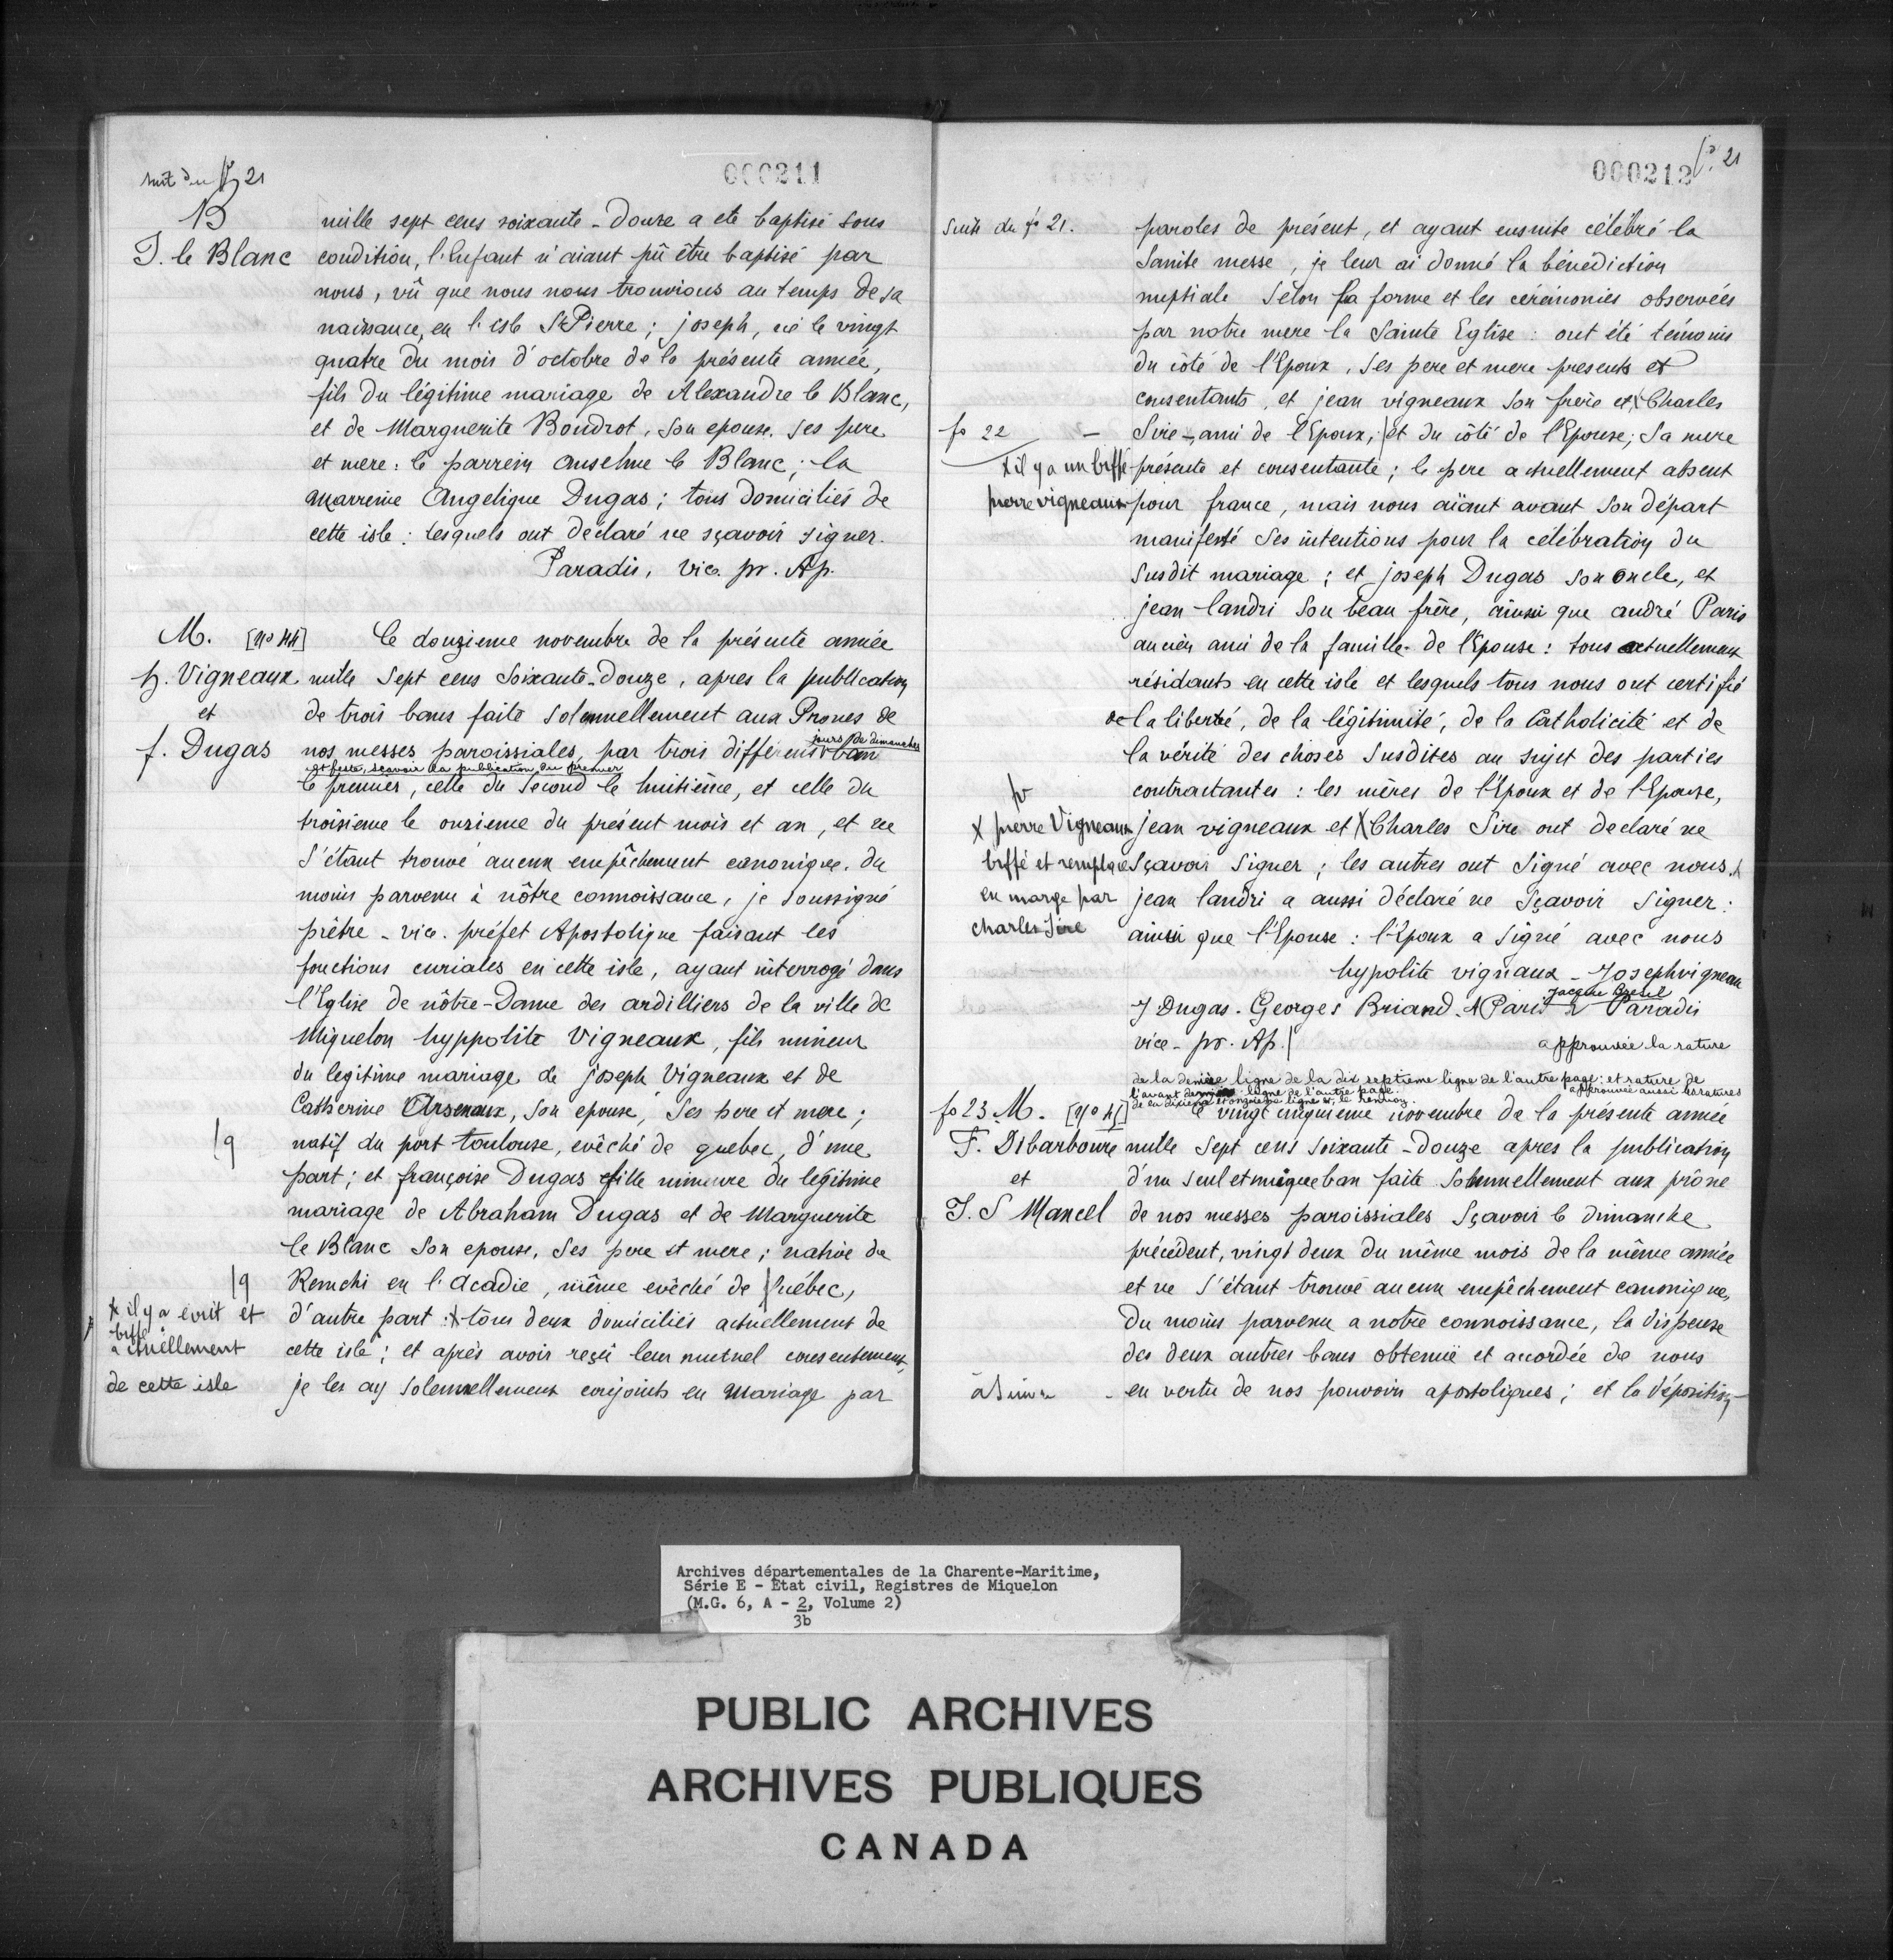 suit du fo 21
000211
B
J. le Blanc
mille sept cens soixante-Douze a eté baptisé sous
condition, l'Enfant n'aiant pû être baptisé par
nous, vû que nous nous trouvions au temps de sa
naissance, en l'isle St Pierre; joseph, né le vingt
quatre du mois d'octobre de la présente année,
fils du légitime mariage de Alexandre le Blanc,
et de Marguerite Boudrot, son epouse. ses pere
et mere: le parrein Anselme le Blanc; la
marreine Angelique Dugas; tous domiciliés de
cette isle: lesquels ont déclaré ne sçavoir signer.
Paradis, vice. pr. Ap.
M. [No 44]
h. Vigneaux
et
f. Dugas
le douzieme novembre de la présente année
mille Sept cens Soixante-Douze, apres la publication
de trois bans faite solemnellement aux Prones de
nos messes paroissiales, par trois différens jours de dimanches
et feste, sçavoir la publication du premier
le premier, celle du Second le huitième, et celle du
troisieme le onzieme du présent mois et an, et ne
s'étant trouvé aucun empêchement canonique. du
moins parvenu à nôtre connoissance, je soussigné
prêtre-vice. préfet Apostolique faisant les
fonctions curiales en cette isle, ayant interrogé dans
l'Eglise de nôtre-Dame des ardilliers de la ville de
Miquelon hyppolite Vigneaux, fils mineur
du legitime mariage de joseph Vigneaux et de
Catherine Arsenaux, son epouse, ses pere et mere;
natif du port toulouse, evêché de quebec, d'une
part; et françoise Dugas fille mineure du legitime
mariage de Abraham Dugas et de Marguerite
le Blanc son epouse, ses pere et mere; native de
Remchi en l'Acadie, même evêché de Québec,
d'autre part: x tous deux domiciliés actuellement de
cette isle; et après avoir reçu leur mutuel consentement,
je les ay solemnellement conjoints en mariage par
q
q
x il y a écrit et
biffé
actuellement
de cette isle
fo 21
000212
suite du fo 21.
paroles de présent, et ayant ensuite célébré la
Sainte messe, je leur ai donné la bénédiction
nuptiale Selon la forme et les cérémonies observées
par notre mere la Sainte Eglise: ont été témoins
du côté de l'Epoux, ses pere et mere presents et
consentants, et jean vigneaux son frere et x Charles
fo 22
Sire-ami de l'Epoux; et du côté de l'Epouse; Sa mere
x il y a un biffé
présente et consentante; le pere actuellement absent
pierre vigneaux
pour france, mais nous aïant avant son départ
manifesté ses intentions pour la célébration du
susdit mariage; et joseph Dugas son oncle, et
jean landri son beau frère, ainsi que andré Paris
ancien ami de la famille de l'Epouse: tous actuellement
résidants en cette isle et lesquels tous nous ont certifié
de la liberté, de la légitimité, de la Catholicité et de
la vérité des choses susdites au sujet des parties
contractantes: les mères de l'Epoux et de l'Epouse,
x pierre Vigneaux
biffé et remplacé
en marge par
charles Sire
jean vigneaux et x Charles Sire ont declaré ne
sçavoir signer; les autres ont signé avec nous.
jean landri a aussi déclaré ne sçavoir signer:
ainsi que l'Epouse: l'Epoux a signé avec nous
hypolite vignaux - Joseph vigneau
Jacque Bresel
J Dugas. Georges Briand. A Paris Paradis
vice-pr. Ap.
approuvée la rature
de la dernière ligne de la dix septieme ligne de l'autre page: et rature de
l'avant dernière ligne de l'autre page. approuvée aussi les ratures
de la dixieme et onzieme ligne et le renvoy.
fo 23 M. [No 45]
F. Dibarboure
et
J. S Mancel
le vingt cinquieme novembre de la présente année
mille Sept cens Soixante-Douze apres la publication
d'un seul et unique ban faite Solemnellement aux prône
de nos messes paroissiales sçavoir le dimanche
précédent, vingt deux du même mois de la même année
et ne s'étant trouvé aucun empêchement canonique,
du moins parvenu a notre connoissance, la dispense
des deux autres bans obtenuë et accordée de nous
en vertu de nos pouvoirs apostoliques; et la déposition
à Suivre
Archives départementales de la Charente-Maritime,
Série E - Etat civil, Registres de Miquelon
(M.G. 6, A - 2, Volume 2)
3b
PUBLIC ARCHIVES
ARCHIVES PUBLIQUES
CANADA